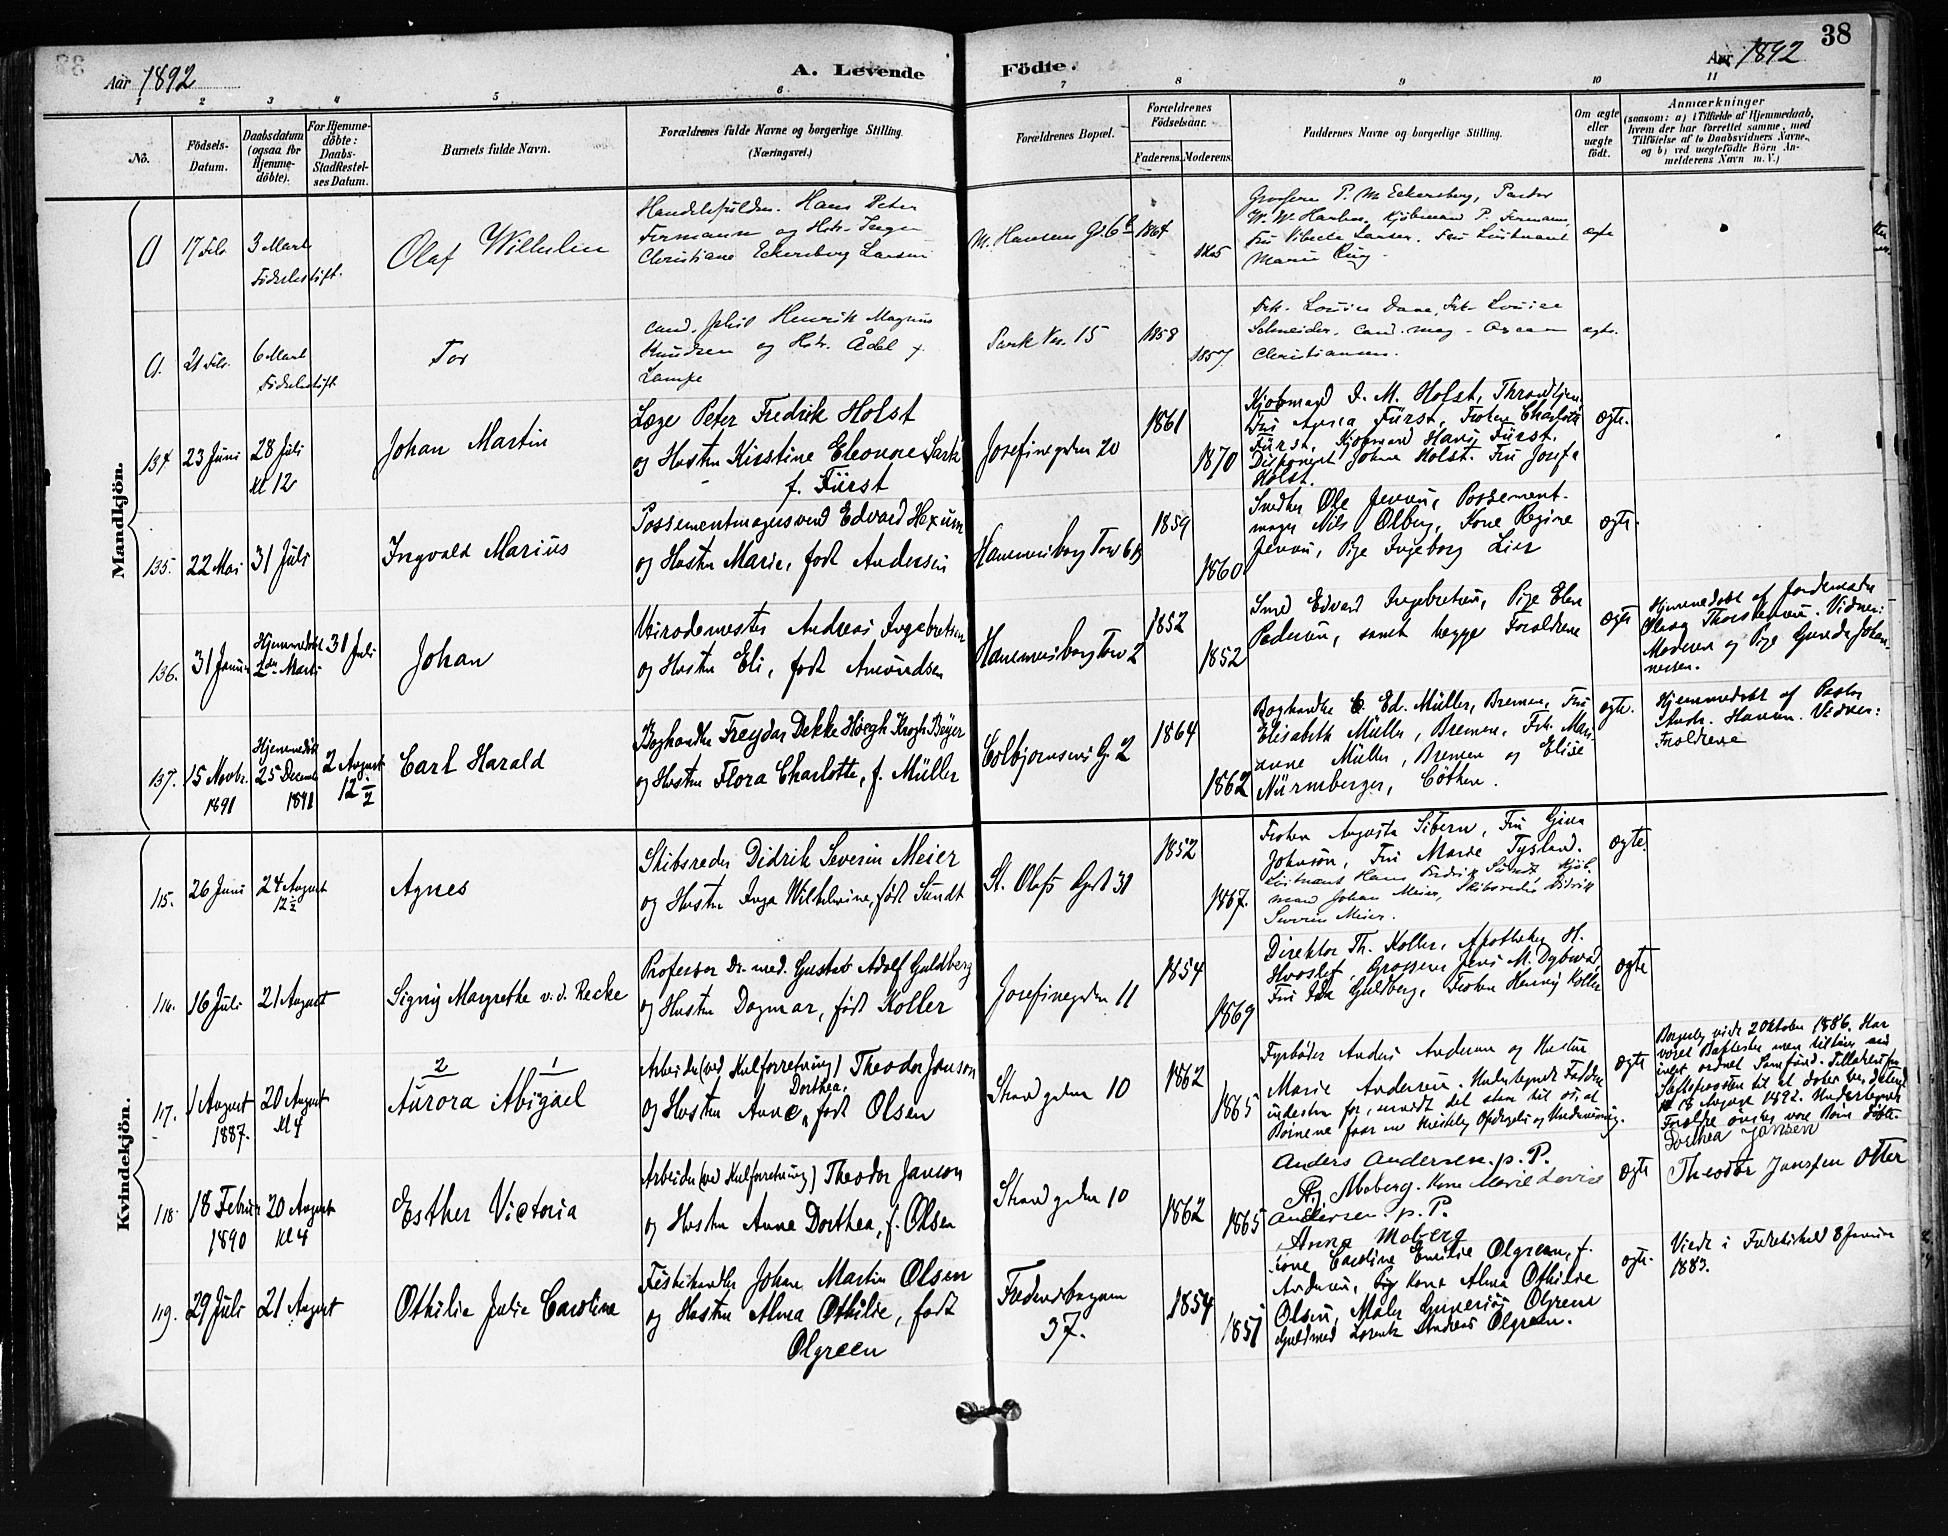 38
Aar 1892
A. Levende
Födte.
Aar 1892
1 2 3 4 5 6 7 8 9 10 11
No.
Födsels-
Datum.
Daabsdatum
(ogsaa for
Hjemme-
döbte).
For Hjemme-
döbte:
Daabs-
Stadfæstel-
ses Datum.
Barnets fulde Navn.
Forældrenes fulde Navne og borgerlige Stilling.
(Næringsvei.)
Forældrenes Bopæl.
Forældrenes
Födselsaar.
Faderens. Moderens.
Faddernes Navne og borgerlige Stilling.
Om ægte
eller
uægte
födt.
Anmærkninger
(saasom: a) i Tilfælde af Hjemmedaab,
hvem der har forrettet samme, med
Tilföielse af to Daabsvidners Navne,
og b) ved uægtefödte Börn An-
melderens Navn m. V.)
Mandkjön.
17 Feb. 3 Mart
Födselsstift.
Olaf Wilhelm
Hans Peter
Fermann og Hstr. Inger
Christiane Eckersberg Larsen
1864
1865
Grosserer P. M. Eckersberg, Pastor
Kjöbmand P. Fermann,
Fru Vibecke Larsen. Fru Luitnant
Marie
ægte
21 Feb. 6 Mart
Födselsstift.
Tor
cand. philol Henrik Magnus
Knudsen og Hstr. Ådel f.
Lampe
Park Vn. 15
1858
1857
Frk. Louise Dane, Frk. Louise
Schneider. cand. mag. Oscar
Christiansen.
ægte.
134 23 Juni 28 Juli
Kl 12
Johan Martin
Læge Peter Fredrik Holst
og Hustru Kirstine Eleonore
f. Fürst
Josefinegden 20
1861
1870
Kjöbmand I. M. Holst, Throndhjem
Fru Agnes Fürst, Fröken Charlotte
Fürst, Kjöbmand Hans Fürst.
Disponent Johan Holst. Fru Josefa
Holst.
ægte.
135. 22 Mai 31 Juli
Ingvald Marius
Possementmagersvend Edvard Hexum
og Hustru Marie, födt Andersen
Hammersborg Torv 6 B
1859
1860
Snedker Ole Jensen, Possement-
mager Nils Olberg, Kone Regine
Jensen, Pige Ingeborg Lier
ægte.
136. 31 Januar Hjemmedöbt
2den Marts
31 Juli
Johan
Andreas Ingebretsen
og Hustru Eli, födt Amundsen
Hammersborg Torv 2
1852
1852
Smed Edvard Ingebretsen, Pige Elen
Pedersen, samt begge Forældrene
ægte
Hjemmedöbt af Jordemoder
Olaug Thorstensen. Vidner:
Moderen og Pige Gunda Johan-
nessen.
137. 15 Novbr.
1891
Hjemmedöbt
25 December
1891
2 August
12 1/2
Carl Harald
Boghandler Freydar Dekke Höegh Krogh Beyer
og Hustru Flora Charlotte, f. Müller
Colbjornsens Gd. 2
1864
1862
Boghandler C. Ed. Müller, Bremen, Fru
Elisabeth Müller, Bremen, Frk. Mari-
anne Müller, Bremen og Elise
Nürmberger, Cöthen.
ægte.
Hjemmedöbt af Pastor
Andr. Hansen. Vidner:
Forældrene
Kvindekjön.
115. 26 Juni 24 August
12 1/2
Agnes
Skibsreder Didrik Severin Meier
og Hustru Inga Wilhelmine, födt Sundt
St. Olafs Gade 31
1852
1867.
Fröken Augusta Sibern, Fru Gina
Johnson, Fru Marie Tysland.
Luitnant Hans Fredrik Sundt Kjöb-
mand Johan Meier, Skibsreder Didrik
Severin Meier.
ægte.
116. 16 Juli 21 August
Signy Margrethe v. d. Recke
Professor Dr. med. Gustav Adolf Guldberg
og Hustru Dagmar, födt Koller
Josefinegden 11
1854
1869
Direktör Th. Koller, Apotheker H.
Hvoslef, Grosserer Jens M. Dybwad,
Fru Ida Guldberg, Fröken Henny Koller
ægte
117. 1 August
1887.
20 August
Kl 4
2 1
Aurora Abigael
Arbeider (ved Kulforretning) Theodor Janson
Dorthea,
og Hustru Anne, födt Olsen
Strandgaden 10
1862
1865
Fyrböder Anders Andersen og Hustru
Marie Andersen. Undertegnede Faddere
indestaa for, saavidt det staar til os, at
Börnene faar en kristelig Opdragelse og Undervisning.
ægte
Borgerlig viede 2 Oktober 1886. Har
været Baptister men tilhörer nu
intet ordnet Samfund. Tilladelse fra
Stiftsprovsten til at döbes ved
18 August 1892. Undertegnede
Forældre önsker vore Börn döbte.
Dorthea Jansen
Anders Andersen. p. P.
118. 18 Februar
1890
20 August
Kl 4
Esther Victoria
Arbeider (ved Kulforretning) Theodor Janson
og Hustru Anne Dorthea, f. Olsen
Strandgaden 10
1862
1865
Moberg. Kone Marie Lovise
Andersen. p. P.
Anna Moberg
ægte
Theodor Janssen Otter
119. 29 Juli 21 August
Othilie Julie Caroline
Fiskehandler Johan Martin Olsen
og Hustru Alma Othilie, födt
Olgreen
Fredensborgveien
37.
1854
1851
Kone Caroline Emilie Olgreen, f.
Andersen, Kone Alma Othilie
Olsen, Maler Gunerius Olgreen
Guldsmed Lorentz Andreas Olgreen.
ægte.
Viede i 8 Januar
1883.